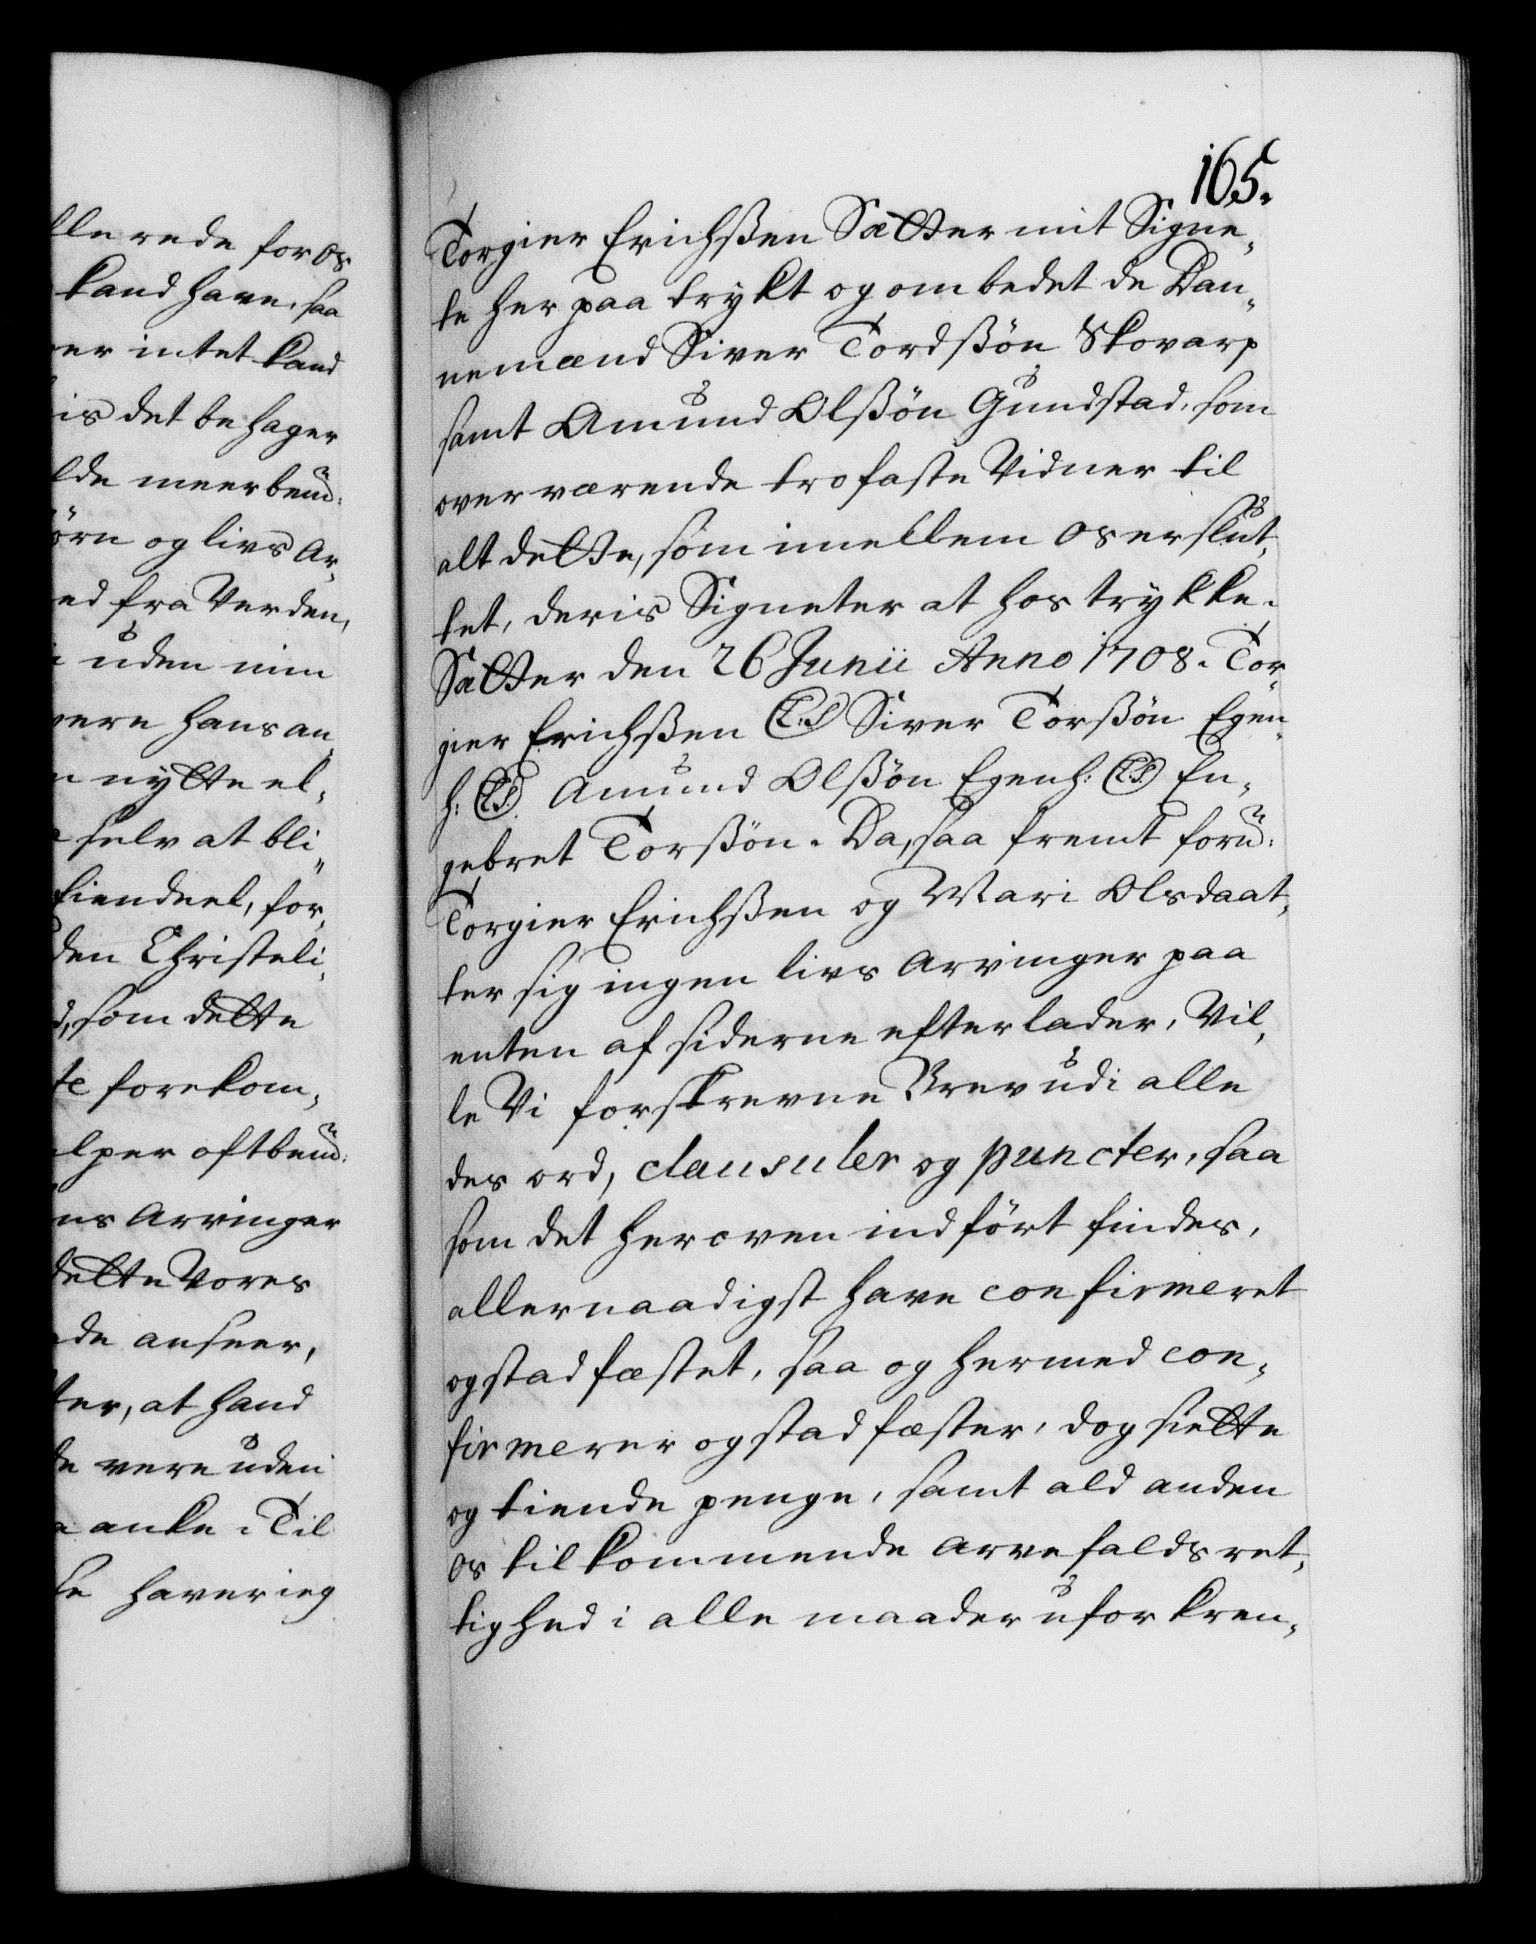 llerede for os
kand have, saa
er intet kand
is det behager
lde meerbemd:
örn og livs Ar„
ed fra Verden,
uden min
vere hans an„
nytte el„
selv at bli„
tiendeel, for„
den Christeli„
d, som dette
te forekom„
lper oftbemd:
ns Arvinger
dette Vores
de anseer,
ter, at hand
de vere uden
anke. Til
se haver ieg
165.
Torgier Erichsßen Sætter mit Signe„
te her paa trykt og ombedet de Dan„
nemænd Siver Tordsßön Skovarp
samt Amund Olsßön Gundstad, som
overværende trofaste Vidner til
alt dette, som imellem os er slut„
tet, deris Signeter at hos trykke.
Sætter den 26 Junii Anno 1708. Tor„
gier Erichsßen (L.S.) Siver Torsßön Egen„
h: (L.S.) Amund Olsßön Egenh: (L.S.) En„
gebret Torsßön. Da, saa fremt forn:
Torgier Erichsßen og Mari Olsdaat„
ter sig ingen livs Arvinger paa
enten af siderne efterlader, Vil„
le Vi forskrevne Brev udi alle
des ord, clausuler og puncter, saa
som det her oven indfört findes,
allernaadigst have confirmeret
og stadfæstet, saa og hermed con„
firmerer og stadfæster, dog siette
og tiende penge, samt ald anden
os tilkommende Arvefalds ret„
tighed i alle maader uforkren„